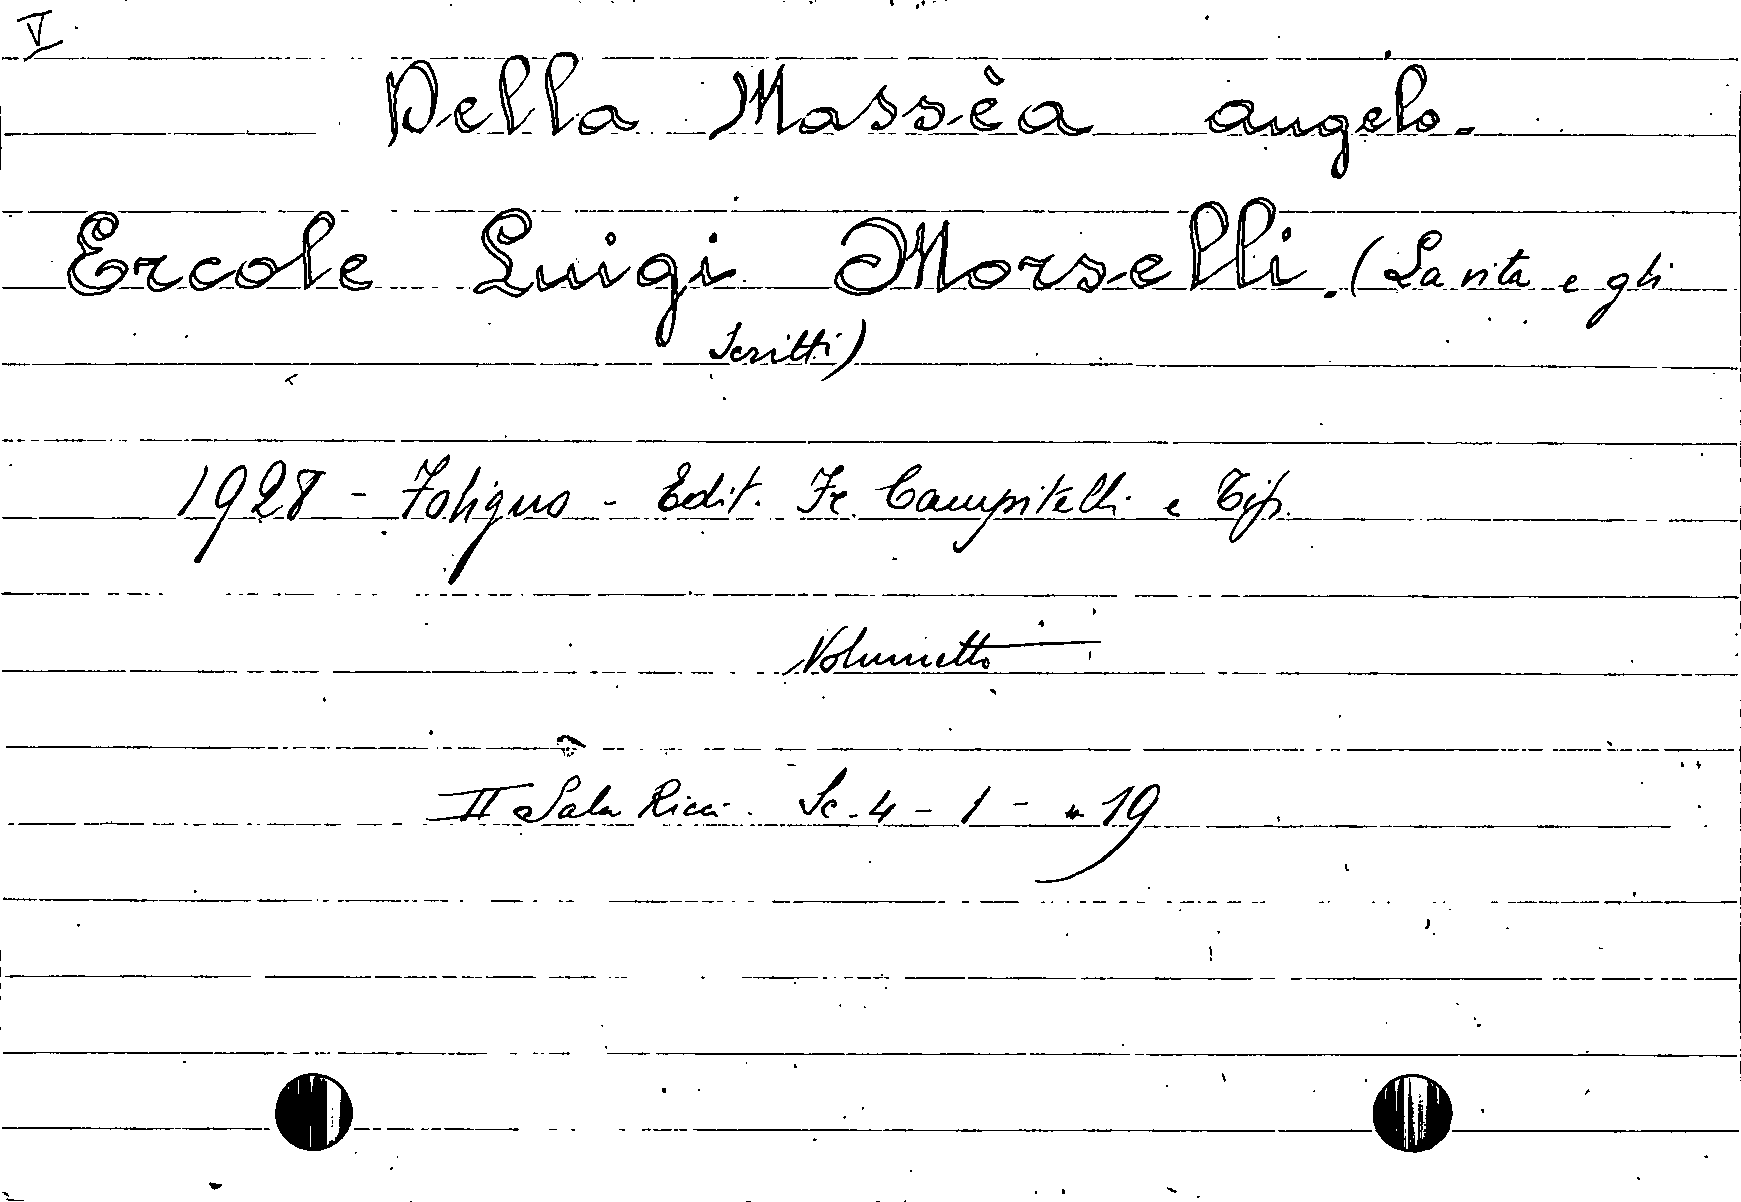 V
Della Massèa Angelo.
Ercole Luigi Morselli. (La vita e gli
Scritti)
1928 - Foligno - Edit. Fr. Campitelli e Tip.
Volumetto
II Sala Ricci. Sc. 4 - 1 - n 19